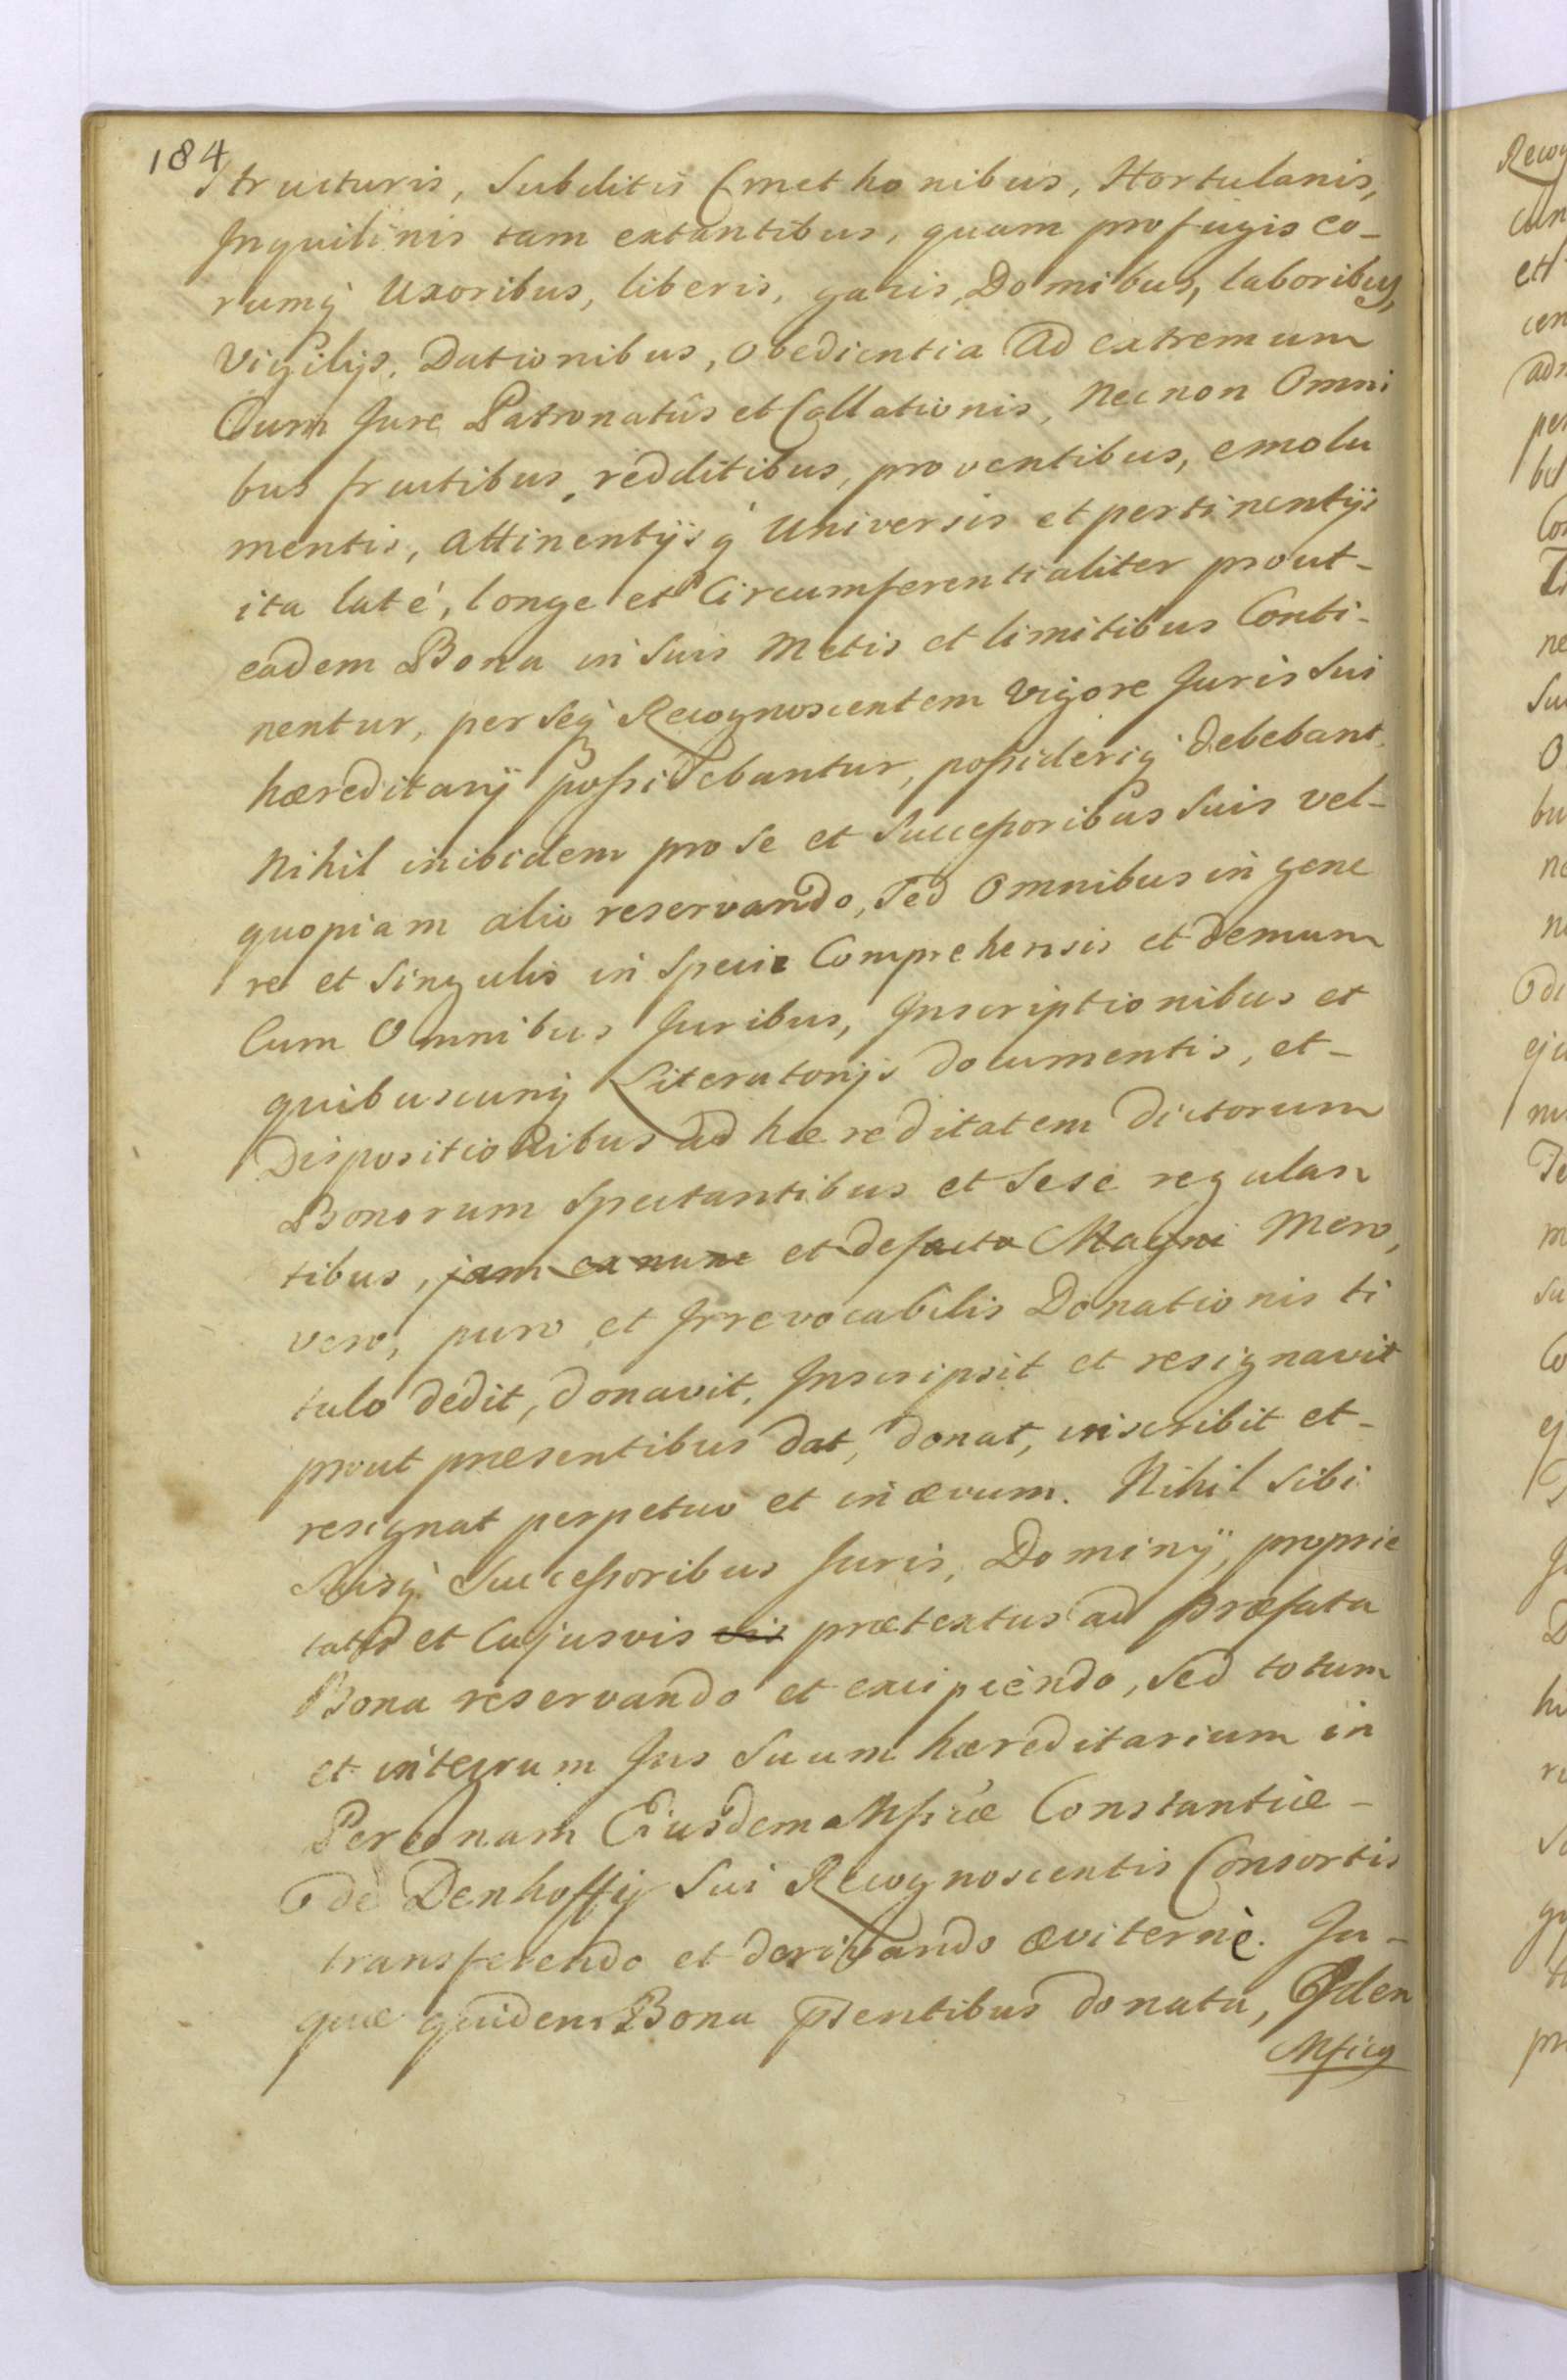 184
Structuris, Subditis Cmethonibus, Hortulanis,
Inquilinis tam extantibus, quam profugis eo-
rumq́ Uxoribus, liberis, gazis, Domibus, laboribus,
Vigilijs, Dationibus, obedientia ad extremum
Cum Jure Patronatûs et Collationis, Nec non Omni
bus fructibus, redditibus, proventibus, emolu
mentis, attinentijsq́ Universis et pertinentijs
ita laté, longe et Circumferentialiter prout-
eadem Bona in suis Metis et limitibus Conti-
nentur, per seq́ Recognoscentem Vigore Juris sui
hæreditarij possidebantur, possideriq́ debebant
Nihil inibidem pro se et Successoribus suis vel-
quopiam alio reservando, Sed Omnibus in gene
re et singulis in specie Comprehensis et demum
Cum Omnibus Juribus, Inscriptionibus et
quibuscunq́ Literatorijs documentis, et-
Dispositionibus ad hæreditatem dictorum
Bonorum spectantibus et sese regulan
tibus, jam ex nunc et defacto Magni Mero,
vero, puro et Irrevocabilis Donationis ti
tulo dedit, donavit, Inscripsit et resignavit
prout præsentibus dat, donat, inscribit et-
resignat perpetuo et in ævum. Nihil sibi
Suisq́ Successoribus Juris, Dominij, proprie
tatis et Cujusvis vis prætextus ad præfata
Bona reservando et excipiendo, Sed totum
et integrum Jus suum hæreditarium in
Personam Eiusdem Mficæ Constantiæ-
de Denhoffy sui Recognoscentis Consortis
transferendo et derivando æviternè. In-
quæ quidem Bona psentibus donata,